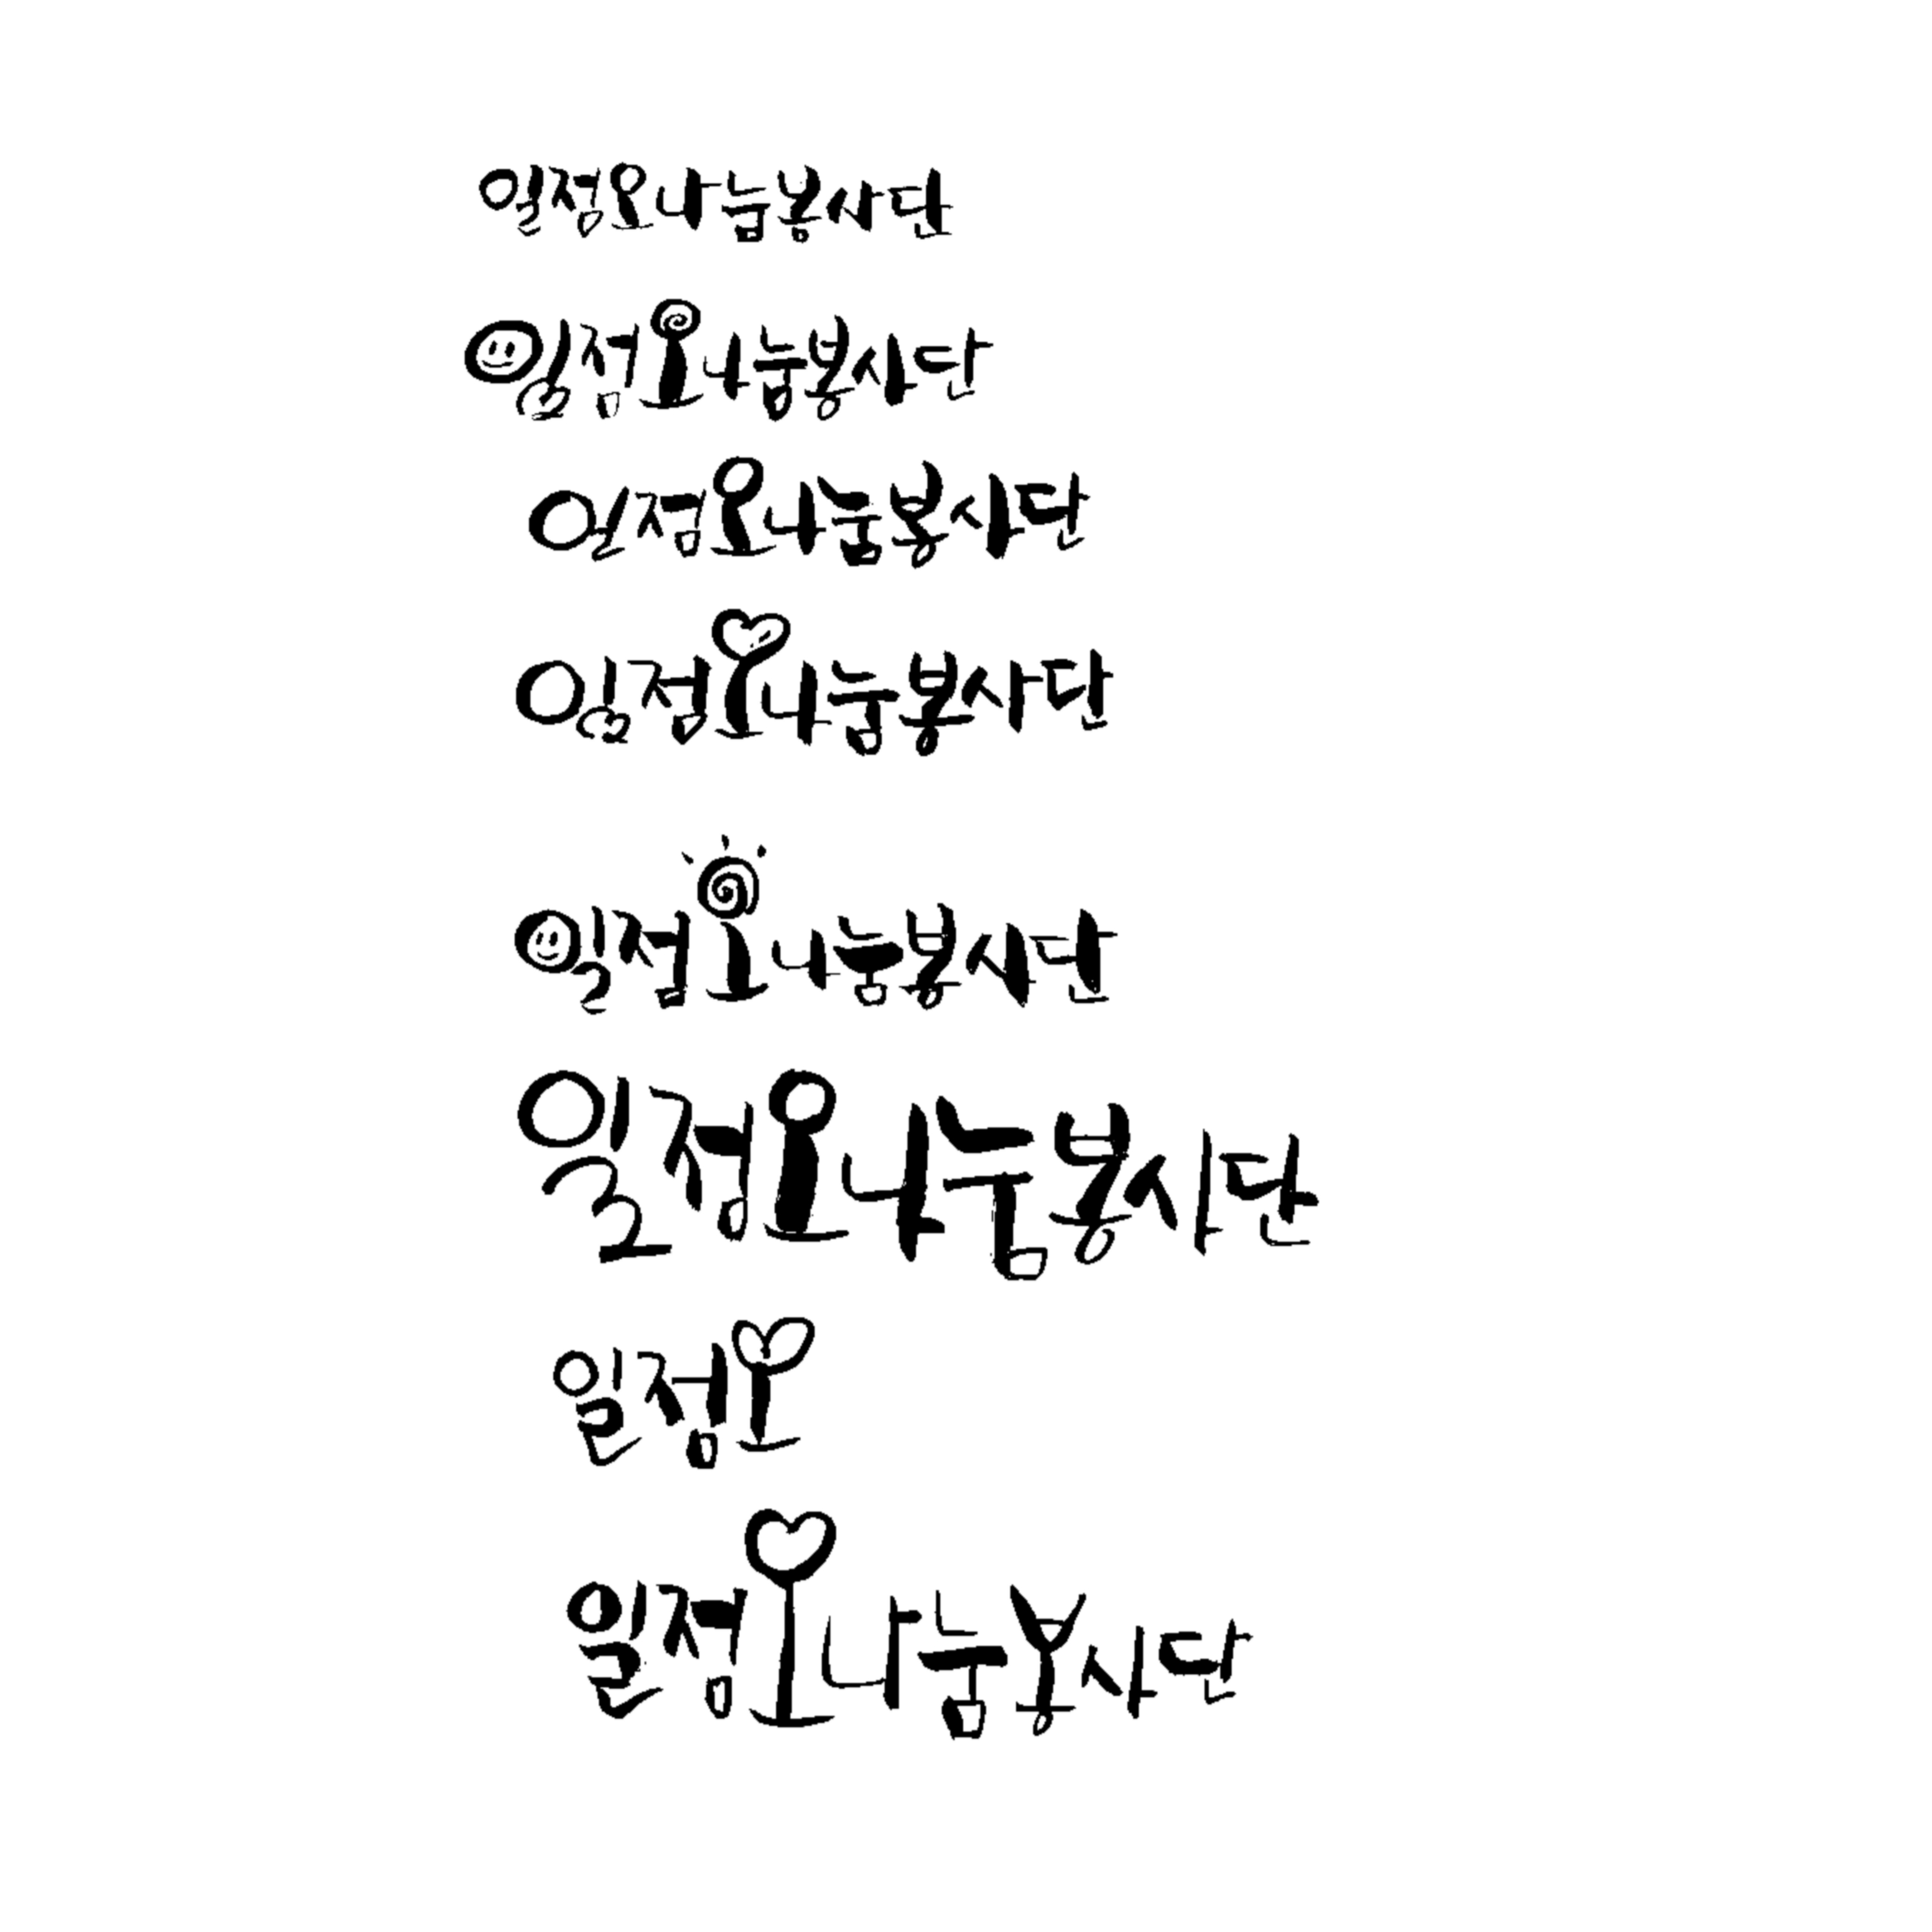 일점오나눔봉사단
일점오나눔봉사단
일점오나눔봉사단
일점오나눔봉사단
일점오나눔봉사단
일점오나눔봉사단
일점오
일점오나눔봉사단